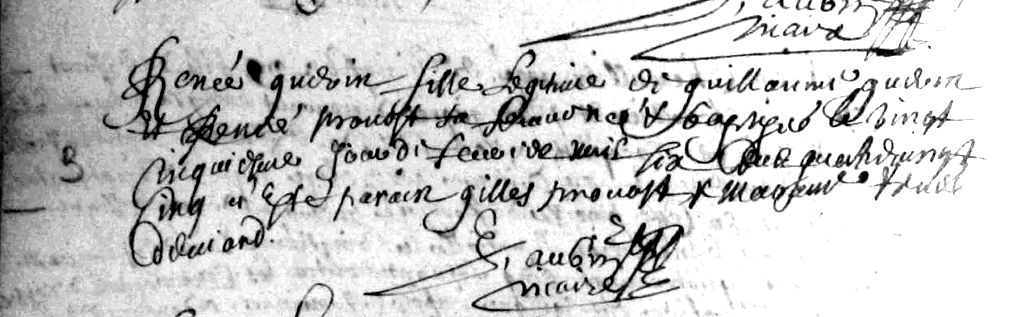 aubin
vicaire
Renée guerin fille legitime de guillaume guerin
et Renée provost sa femme née & baptizée le vingt
cinquiesme jour de fevrier mil six cens quatrevingt
cinq a esté parain gilles provost & maraine Renée
aubin
vicaire
3